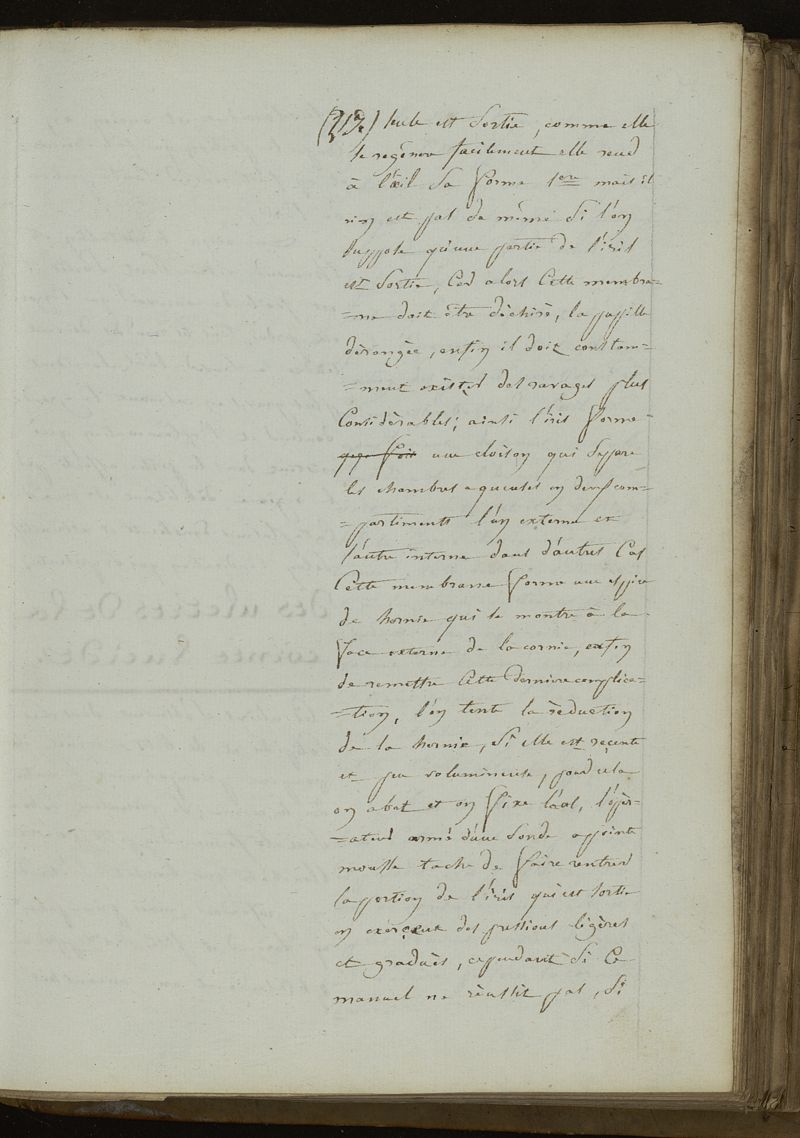 seule est Sortie, comme elle
se regénere facilement elle rend
à l'œil Sa forme 1ere mais il
n'en est pas de même Si l'on
Suppose qu'une partie de l'iris
est Sortie, Car alors Cette membra=
=ne doit être déchiré, la pupille
dérangée, enfin il doit constam=
=ment existér des ravages plus
Considérables; ainsi l'iris forme
une cloison qui Sépare
les chambres aqueuses en deux com=
=partiments l'un externe et
l'autre interne dans d'autres Cas
Cette membrane forme une espèce
de hernie qui se montre à la
face externe de la cornée, enfin
de remettre Cette derniere complica=
=tion, l'on tente la réduction
de la hernie, Si elle est reçente
et peu volumineuse, pour cela
on abat et on fixe l'œil, l'opér=
=ateur armé d'une Sonde a pointe
mousse tache de faire rentrer
la portion de l'iris qui est Sortie
en exerçent des pressions légères
et gradués, cependant Si Ce
manuel ne réussit pas, Si